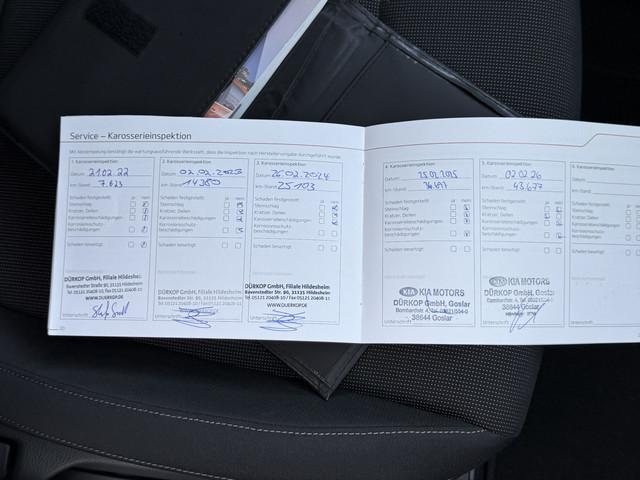 Service – Karosserieinspektion
Mit Abstempelung bestätigt die wartungsausführende Werkstatt, dass die Inspektion nach Herstellervorgabe durchgeführt wurde.
1. Karosserieinspektion
Datum 21.02.22
km-Stand 7.623
Schaden festgestellt: ja nein
Steinschlag
Kratzer, Dellen
Karosseriebeschädigungen
Korrosionsschutz-
beschädigungen
Schaden beseitigt:
DÜRKOP GmbH, Filiale Hildesheim
Bavenstedter Straße 90, 31135 Hildesheim
Tel. 05121 20408-10 / Fax 05121 20408-11
WWW.DUERKOP.DE
Unterschrift
2. Karosserieinspektion
Datum 02.02.2023
km-Stand 14380
Schaden festgestellt: ja nein
Steinschlag
Kratzer, Dellen
Karosseriebeschädigungen
Korrosionsschutz-
beschädigungen
Schaden beseitigt:
DÜRKOP GmbH, Filiale Hildesheim
Bavenstedter Str. 90, 31135 Hildesheim
Tel. 05121 20408-10 / Fax 05121 20408-11
WWW.DUERKOP.DE
Unterschrift
3. Karosserieinspektion
Datum 26.02.2024
km-Stand 25103
Schaden festgestellt: ja nein
Steinschlag
Kratzer, Dellen
Karosseriebeschädigungen
Korrosionsschutz-
beschädigungen
Schaden beseitigt:
DÜRKOP GmbH, Filiale Hildesheim
Bavenstedter Str. 90, 31135 Hildesheim
Tel. 05121 20408-10 / Fax 05121 20408-11
WWW.DUERKOP.DE
Unterschrift
4. Karosserieinspektion
Datum
km-Stand
Schaden festgestellt: ja nein
Steinschlag
Kratzer, Dellen
Karosseriebeschädigungen
Korrosionsschutz-
beschädigungen
Schaden beseitigt:
KIA KIA MOTORS
DÜRKOP GmbH, Goslar
38644 Goslar
Unterschrift
5. Karosserieinspektion
Datum 02.02.26
km-Stand 43.677
Schaden festgestellt: ja nein
Steinschlag
Kratzer, Dellen
Karosseriebeschädigungen
Korrosionsschutz-
beschädigungen
Schaden beseitigt:
KIA KIA MOTORS
DÜRKOP GmbH, Goslar
38644 Goslar
Unterschrift
Datum
km-Stand
Schaden festgestellt:
Steinschlag
Kratzer, Dellen
Schaden beseitigt: